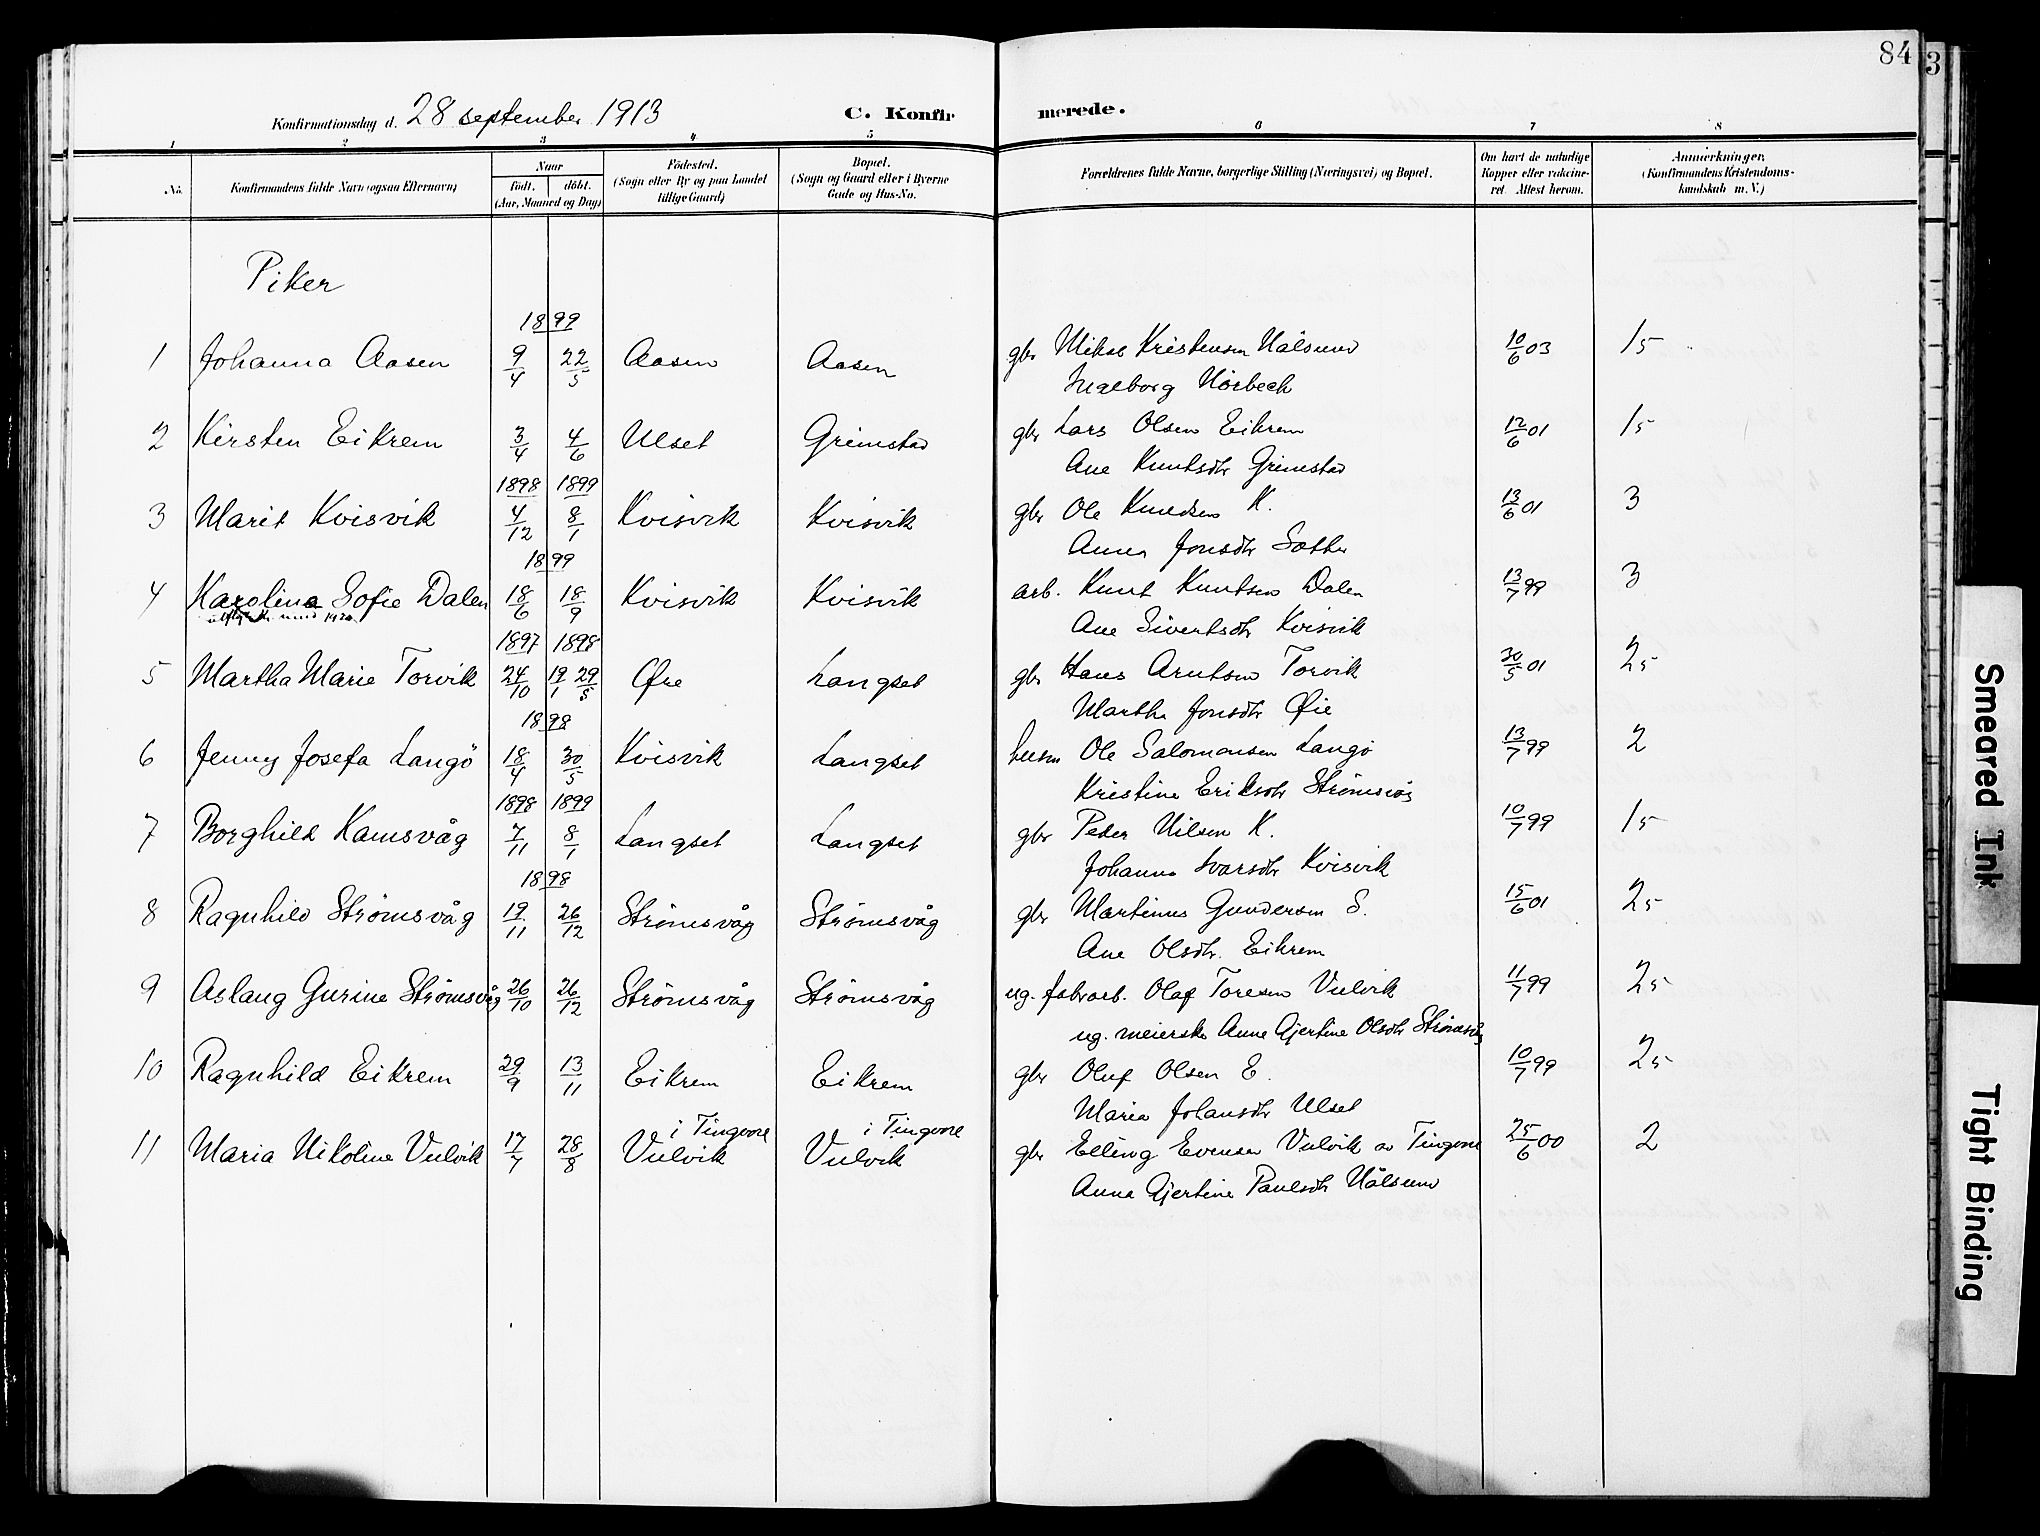 84
3
Konfirmationsdag d. 28 september 1913 C. Konfir merede.
1 2 3 4 5 6 7 8
No. Konfirmandens fulde Navn (ogsaa Efternavn) Naar født. døbt. (Aar, Maaned og Dag) Fødested. (Sogn eller By og paa Landet tillige Gaard) Bopæl. (Sogn og Gaard eller i Byerne Gade og Hus-No. Forældrenes fulde Navne, borgerlige Stilling (Næringsvei) og Bopæl. Om havt de naturlige Kopper eller vaccineret. Attest herom. Anmærkninger. (Konfirmandens Kristendomskundskab m. V.)
Piker
1899
1 Johanna Aasen 9/4 22/5 Aasen Aasen gbr Mikal Kristensen Nålsund 10/6 03 15
Ingeborg Nörbech
2 Kirsten Eikrem 3/4 4/6 Ulset Grimstad gbr Lars Olsen Eikrem 12/6 01 15
Ane Knutsdtr Grimstad
1898 1899
3 Marit Kvisvik 4/12 8/1 Kvisvik Kvisvik gbr Ole Knudsen K. 13/6 01 3
Anne Jonsdtr Sæther
1899
4 Karoline Sofie Dalen 18/6 18/9 Kvisvik Kvisvik arb. Knut Knutsen Dalen 13/7 99 3
Ane Sivertsdtr Kvisvik
1897 1898
5 Martha Marie Torvik 24/10 19/1 29/5 Øre Langset gbr Hans Arntsen Torvik 30/5 01 25
Martha Jonsdtr Øie
1898
6 Jenny Josefa Langö 18/4 30/5 Kvisvik Langset husm Ole Salomonsen Langö 13/7 99 2
Kristine Eriksdtr Strømsvåg
1898 1899
7 Borghild Kamsvåg 7/11 8/1 Langset Langset gbr Peder Nilsen K. 10/7 99 15
Johanna Ivarsdtr Kvisvik
1898
8 Ragnhild Strømsvåg 19/11 26/12 Strømsvåg Strømsvåg gbr Martinus Gundersen S. 15/6 01 25
Ane Olsdtr. Eikrem
9 Aslaug Gurine Strømsvåg 26/10 26/12 Strømsvåg Strømsvåg ug. fabrarb. Olaf Toresen Vulvik 11/7 99 25
ug. meierske Anne Gjertine Olsdtr Strømsvåg
10 Ragnhild Eikrem 29/9 13/11 Eikrem Eikrem gbr Oluf Olsen E. 10/7 99 25
Maria Johansdtr Ulset
i Tingvoll i Tingvoll
11 Maria Nikoline Vulvik 17/7 28/8 Vulvik Vulvik gbr Elling Evensen Vulvik av Tingvoll 25/6 00 2
Anna Gjertine Paulsdtr Nålsund
Smeared Ink
Tight Binding